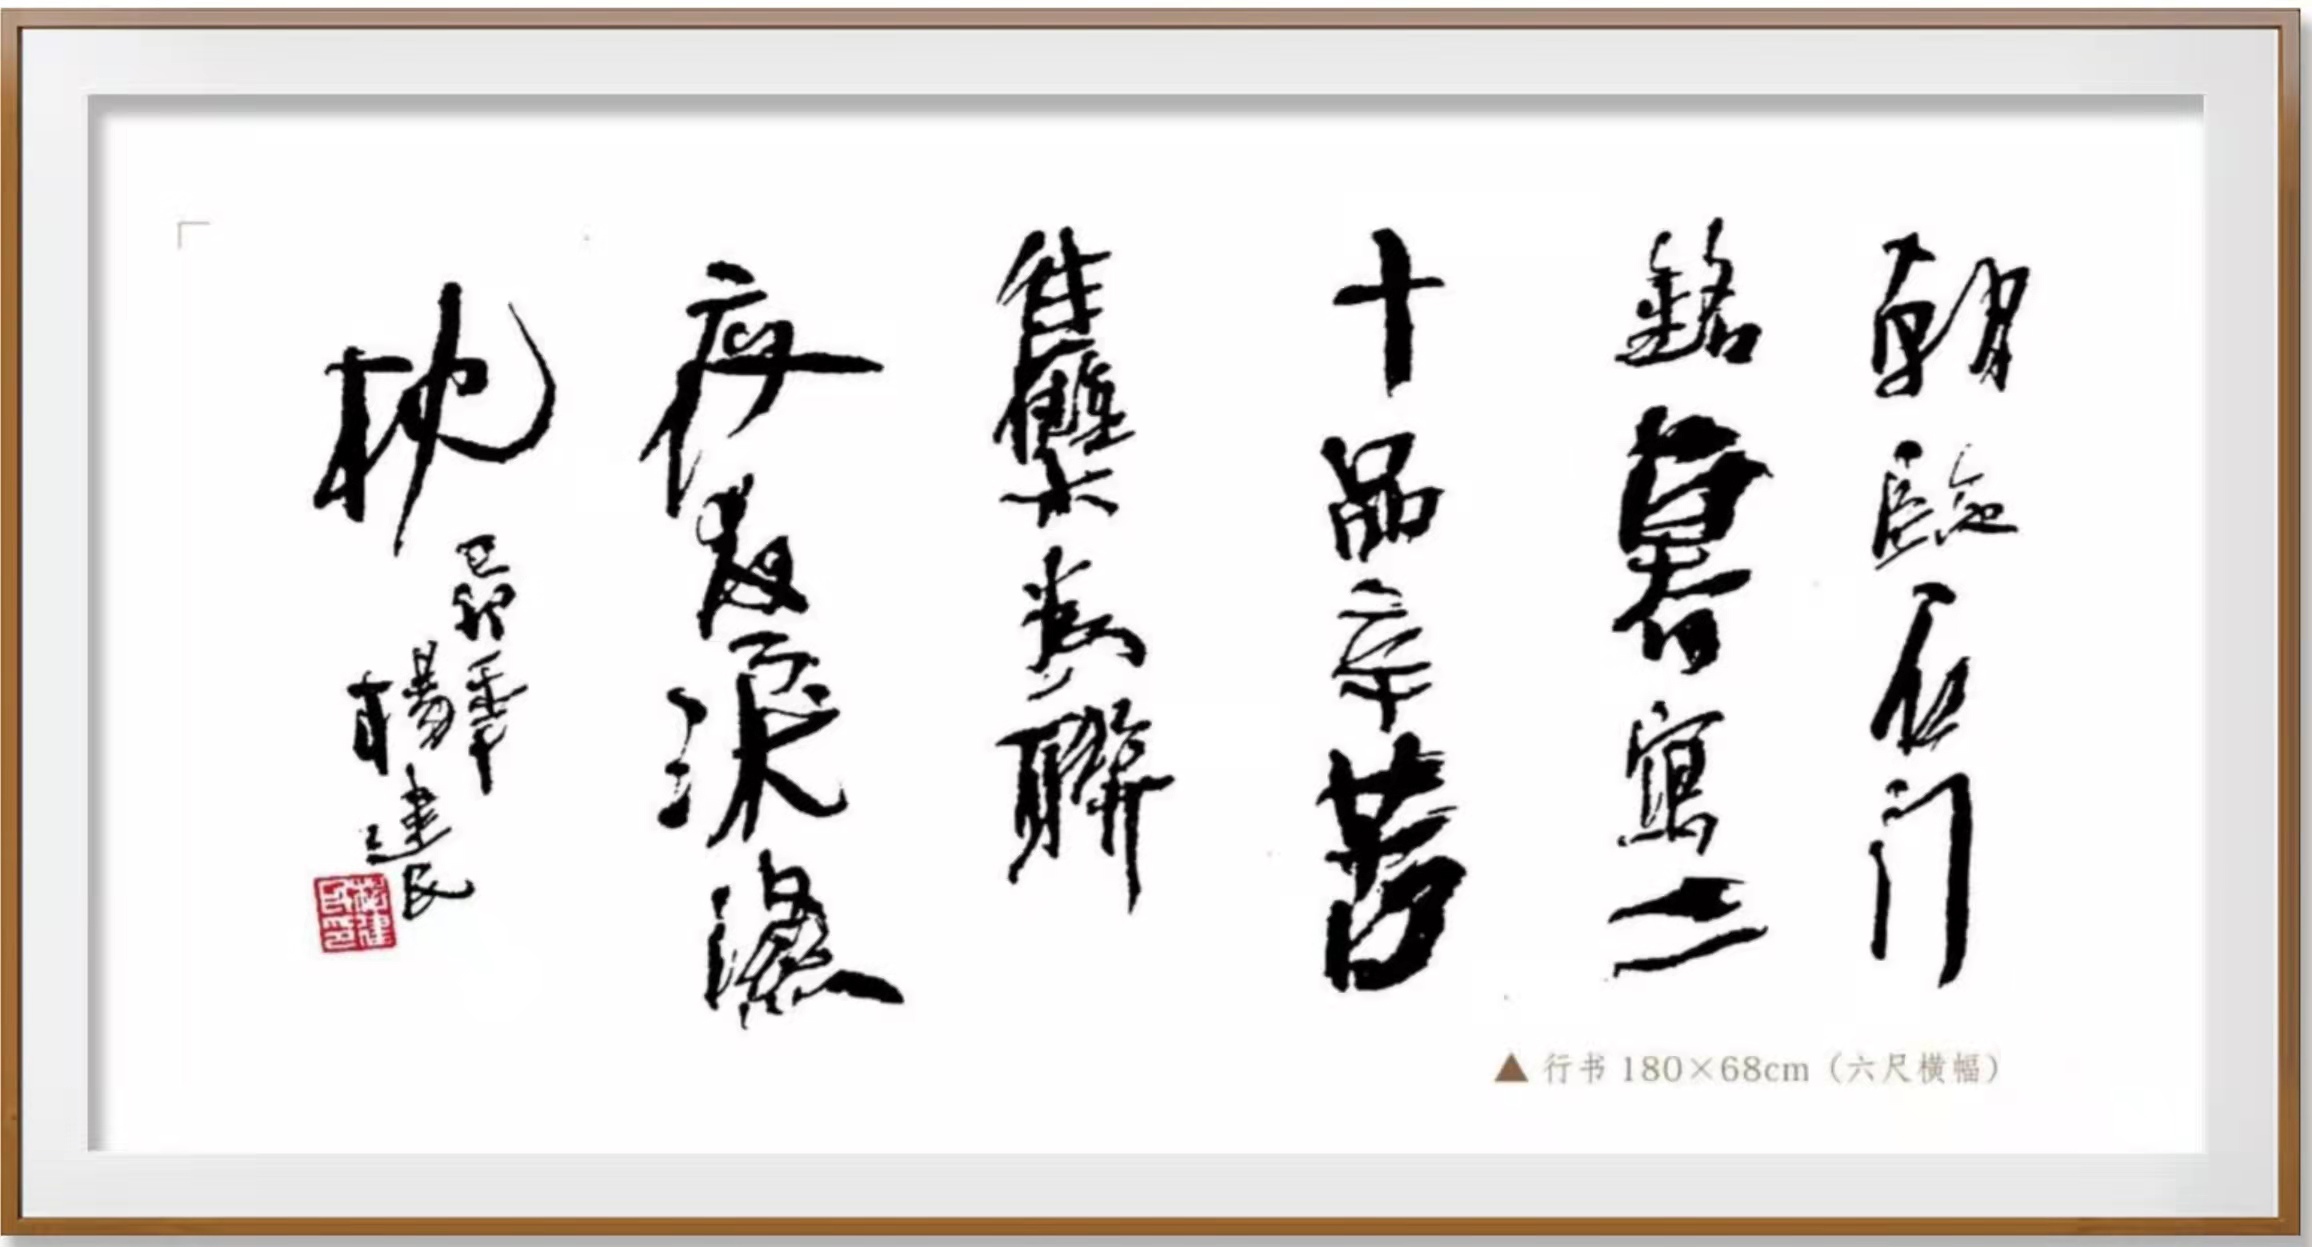 朝臨石门
銘暮寫二
十品辛苦
雧為聯
夜夜淚濕
枕
己卯秊
楊建民
楊建民印
▲ 行书 180×68cm（六尺横幅）